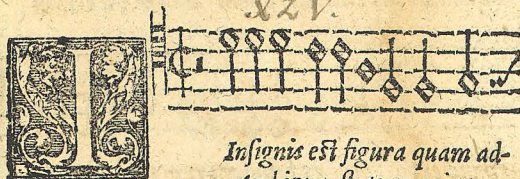 XLV.
I
Insignis est figura quam ad-